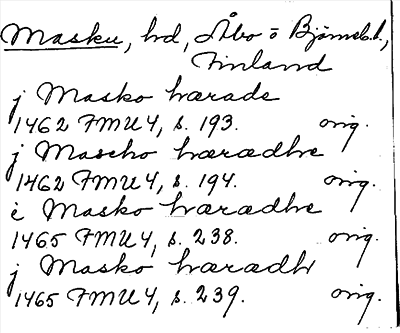 Masku, hd, Åbo o Björneb. l.,
Finland
j Masko hærade
1462 FMU 4, s. 193. orig.
j Mascho hærædhe
1462 FMU 4, s. 194. orig.
i Masko hærædhe
1465 FMU 4, s. 238. orig.
j Masko hærædh
1465 FMU 4, s. 239. orig.